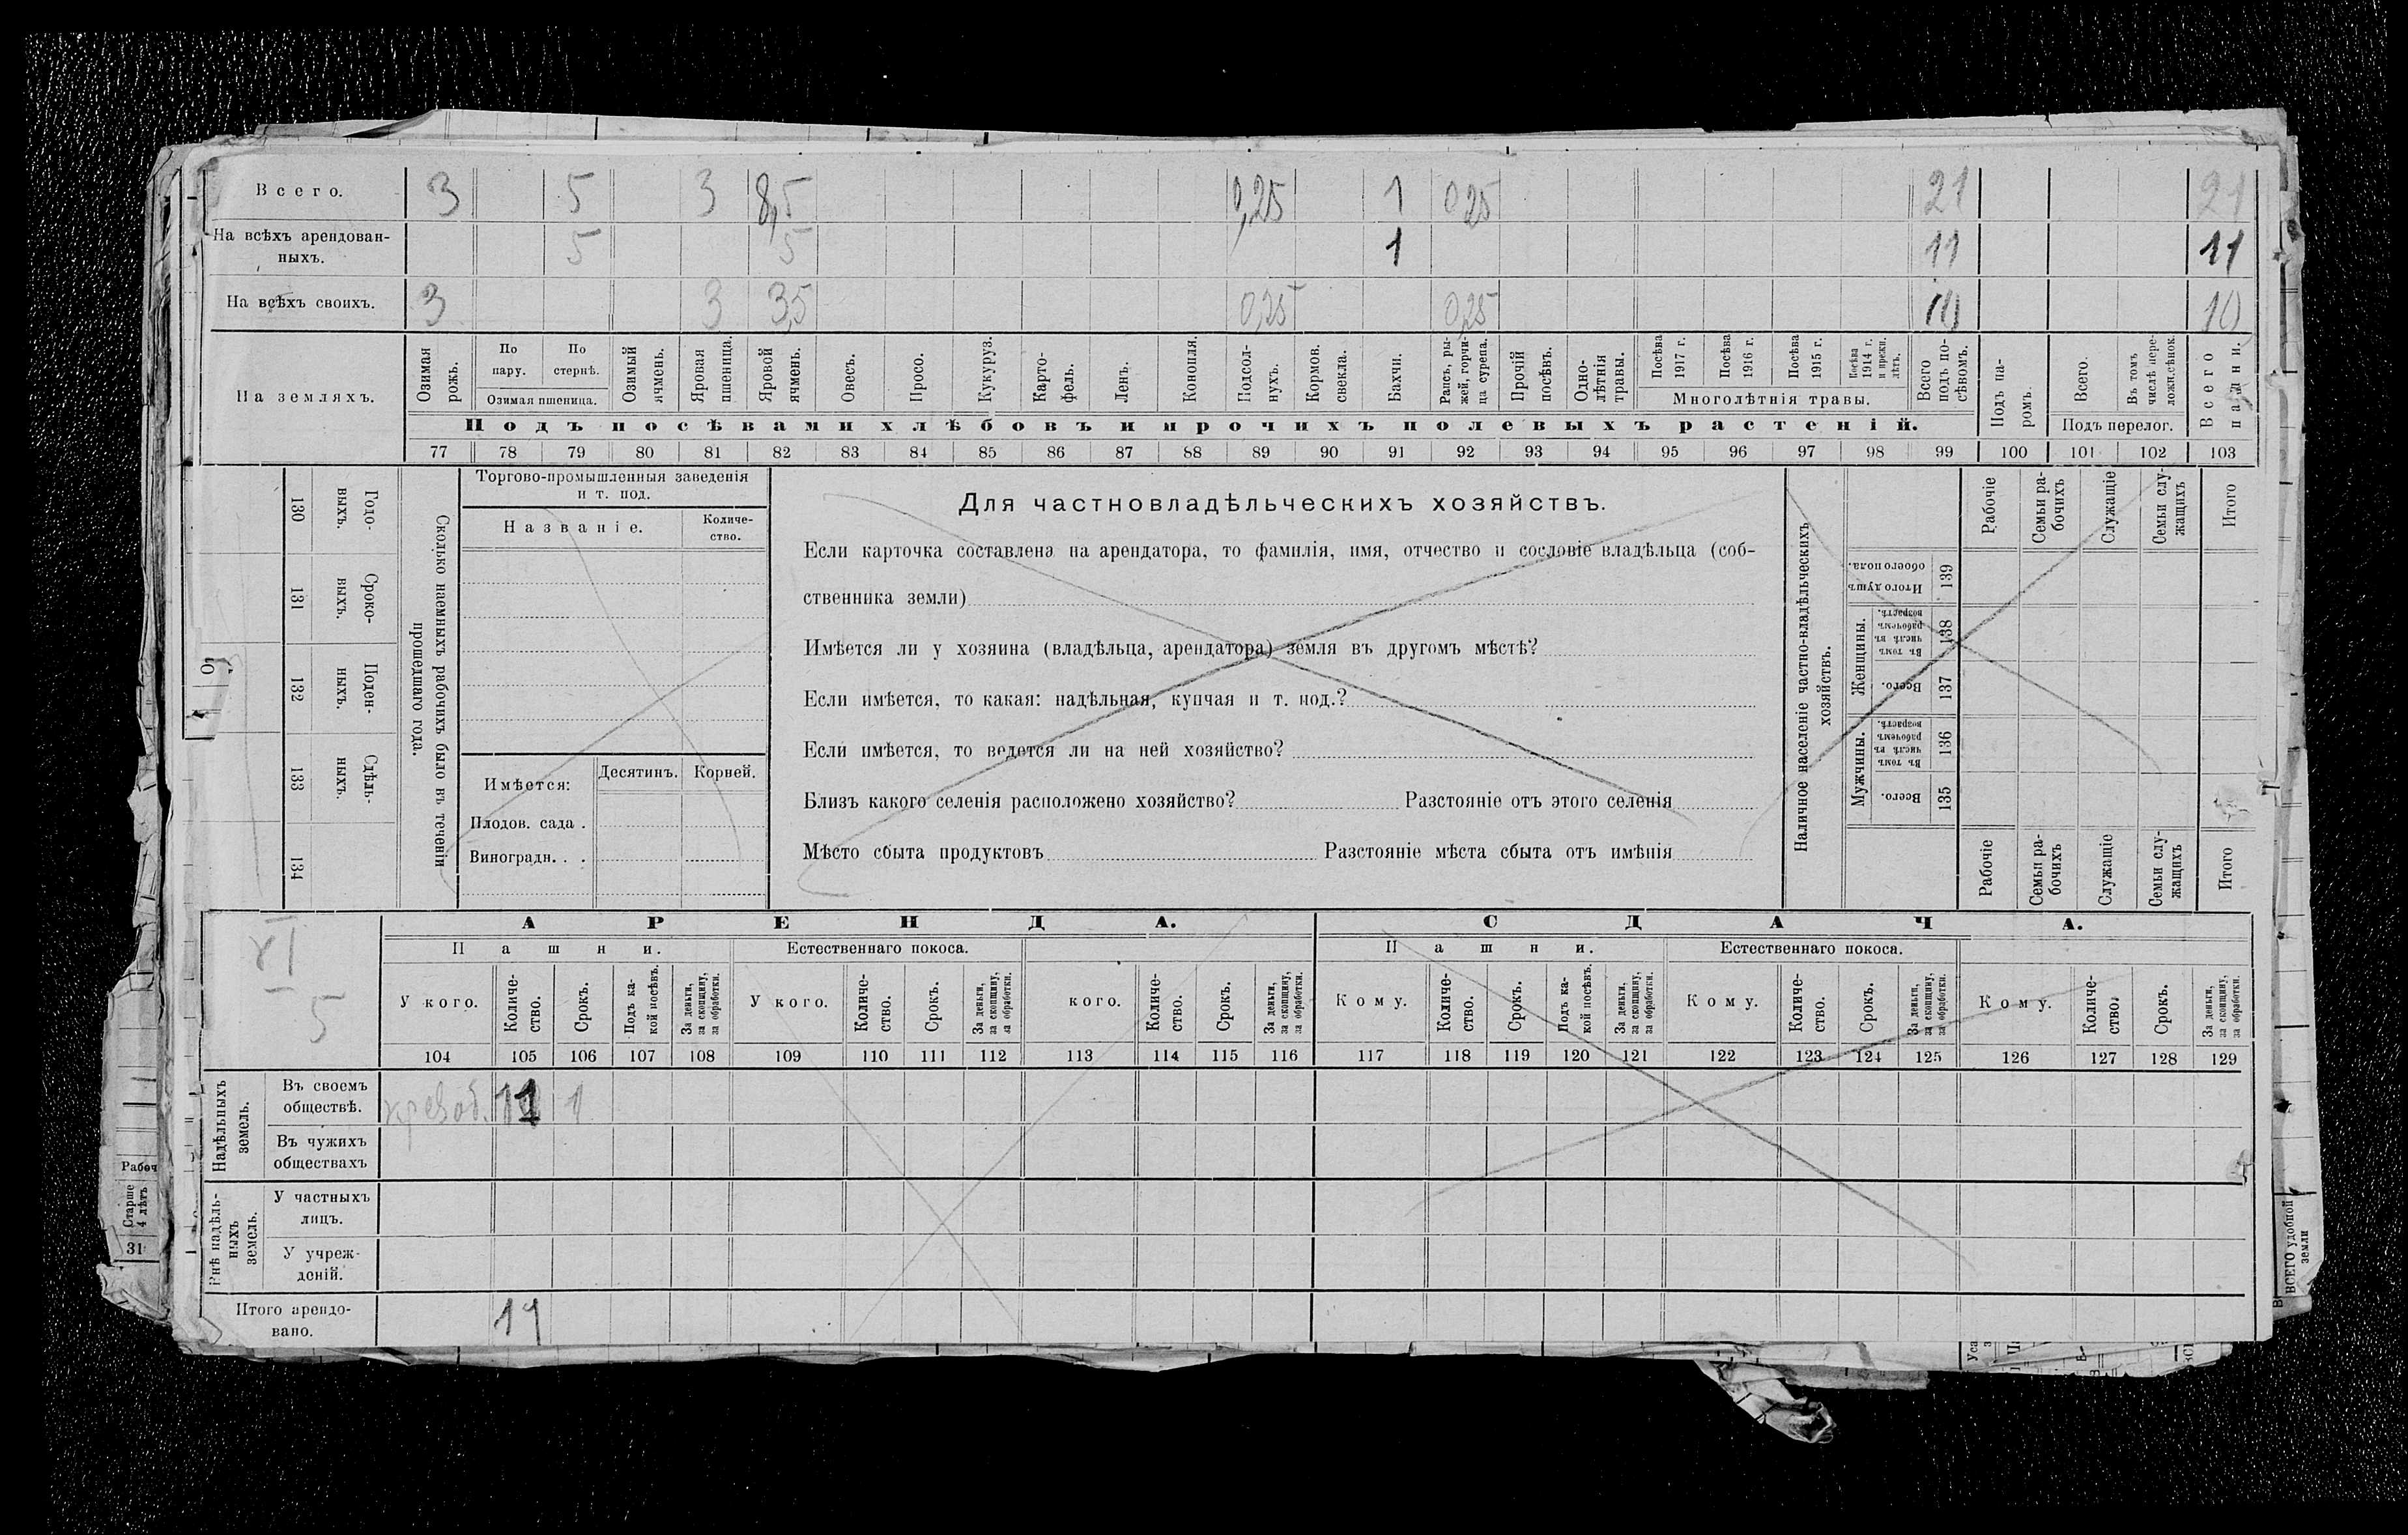 Всего. 3 5 3 8,5 0,25 1 0 25 21 21
На всѣхъ арендован- 5 5 1 11 11
ныхъ.
На всѣхъ своихъ. 3 3 3,5 0,25 0,25 10 10
На земляхъ.
Озимая рожь.
По пару.
По стернѣ.
Озимая пшеница.
Озимый ячмень.
Яровая пшеница.
Яровой ячмень.
Овесъ.
Просо.
Кукуруз.
Карто-
фель.
Ленъ.
Конопля.
Подсол-
нухъ.
Кормов.
свекла.
Бахчи.
Рапсъ, ры-
жей, горчи-
ца сурепа.
Прочій
посѣвъ.
Одно-
лѣтнія
травы.
Посѣва
1917 г.
Посѣва
1916 г.
Посѣва
1915 г.
Посѣва
1914 г.
и прежн.
лѣтъ.
Многолѣтнія травы.
Всего
подъ по-
сѣвомъ.
Подъ па-
ромъ.
Всего.
Въ томъ
числѣ пере-
ложн.сѣнок.
Подъ перелог.
Всего
пашни.
Подъ посѣвами хлѣбовъ и прочихъ полевыхъ растеній.
77 78 79 80 81 82 83 84 85 86 87 88 89 90 91 92 93 94 95 96 97 98 99 100 101 102 103
130 131 132 133 134
Годо-
выхъ.
Сроко-
выхъ.
Поден-
ныхъ.
Сдѣль-
ныхъ.
Сколько наемныхъ рабочихъ было въ теченіи
прошедшаго года.
Торгово-промышленныя заведенія
и т. под.
Названіе.
Количе-
ство.
Имѣется:
Десятинъ. Корней.
Плодов. сада .
Виноградн. . .
Для частновладѣльческихъ хозяйствъ.
Если карточка составлена на арендатора, то фамилія, имя, отчество и сословіе владѣльца (соб-
ственника земли)
Имѣется ли у хозяина (владѣльца, арендатора) земля въ другомъ мѣстѣ?
Если имѣется, то какая: надѣльная, купчая и т. под.?
Если имѣется, то ведется ли на ней хозяйство?
Близъ какого селенія расположено хозяйство? Разстояніе отъ этого селенія
Мѣсто сбыта продуктовъ Разстояніе мѣста сбыта отъ имѣнія
Наличное населеніе частно-владѣльческихъ
хозяйствъ.
Мужчины. Женщины.
Итого душъ
обоего пола.
Въ томъ
числѣ въ
рабочемъ
возрастѣ.
Всего.
Въ томъ
числѣ въ
рабочемъ
возрастѣ.
Всего.
139
138
137
136
135
Рабочіе
Семьи ра-
бочихъ
Служащіе
Семьи слу-
жащихъ
Итого
Рабочіе
Семьи ра-
бочихъ
Служащіе
Семьи слу-
жащихъ
Итого
XI
5
АРЕНДА. СДАЧА.
Пашни. Естественнаго покоса. Пашни. Естественнаго покоса.
У кого.
Количе-
ство.
Срокъ.
Подъ ка-
кой посѣвъ.
За деньги,
за скопщину,
за обработки.
У кого.
Количе-
ство.
Срокъ.
За деньги,
за скопщину,
за обработки.
кого.
Количе-
ство.
Срокъ.
За деньги,
за скопщину,
за обработки.
Кому.
Количе-
ство.
Срокъ.
Подъ ка-
кой посѣвъ.
За деньги,
за скопщину,
за обработки.
Кому.
Количе-
ство.
Срокъ.
За деньги,
за скопщину,
за обработки.
Кому.
Количе-
ство.
Срокъ.
За деньги,
за скопщину,
за обработки.
104 105 106 107 108 109 110 111 112 113 114 115 116 117 118 119 120 121 122 123 124 125 126 127 128 129
Надѣльныхъ
земель.
Въ своемъ
обществѣ. 11 1
Въ чужихъ
обществахъ
Внѣ надѣль-
ныхъ
земель.
У частныхъ
лицъ.
У учреж-
деній.
Итого арендо-
вано. 11
Рабоч
Старше
4 лѣтъ
31
ВСЕГО удобной
земли